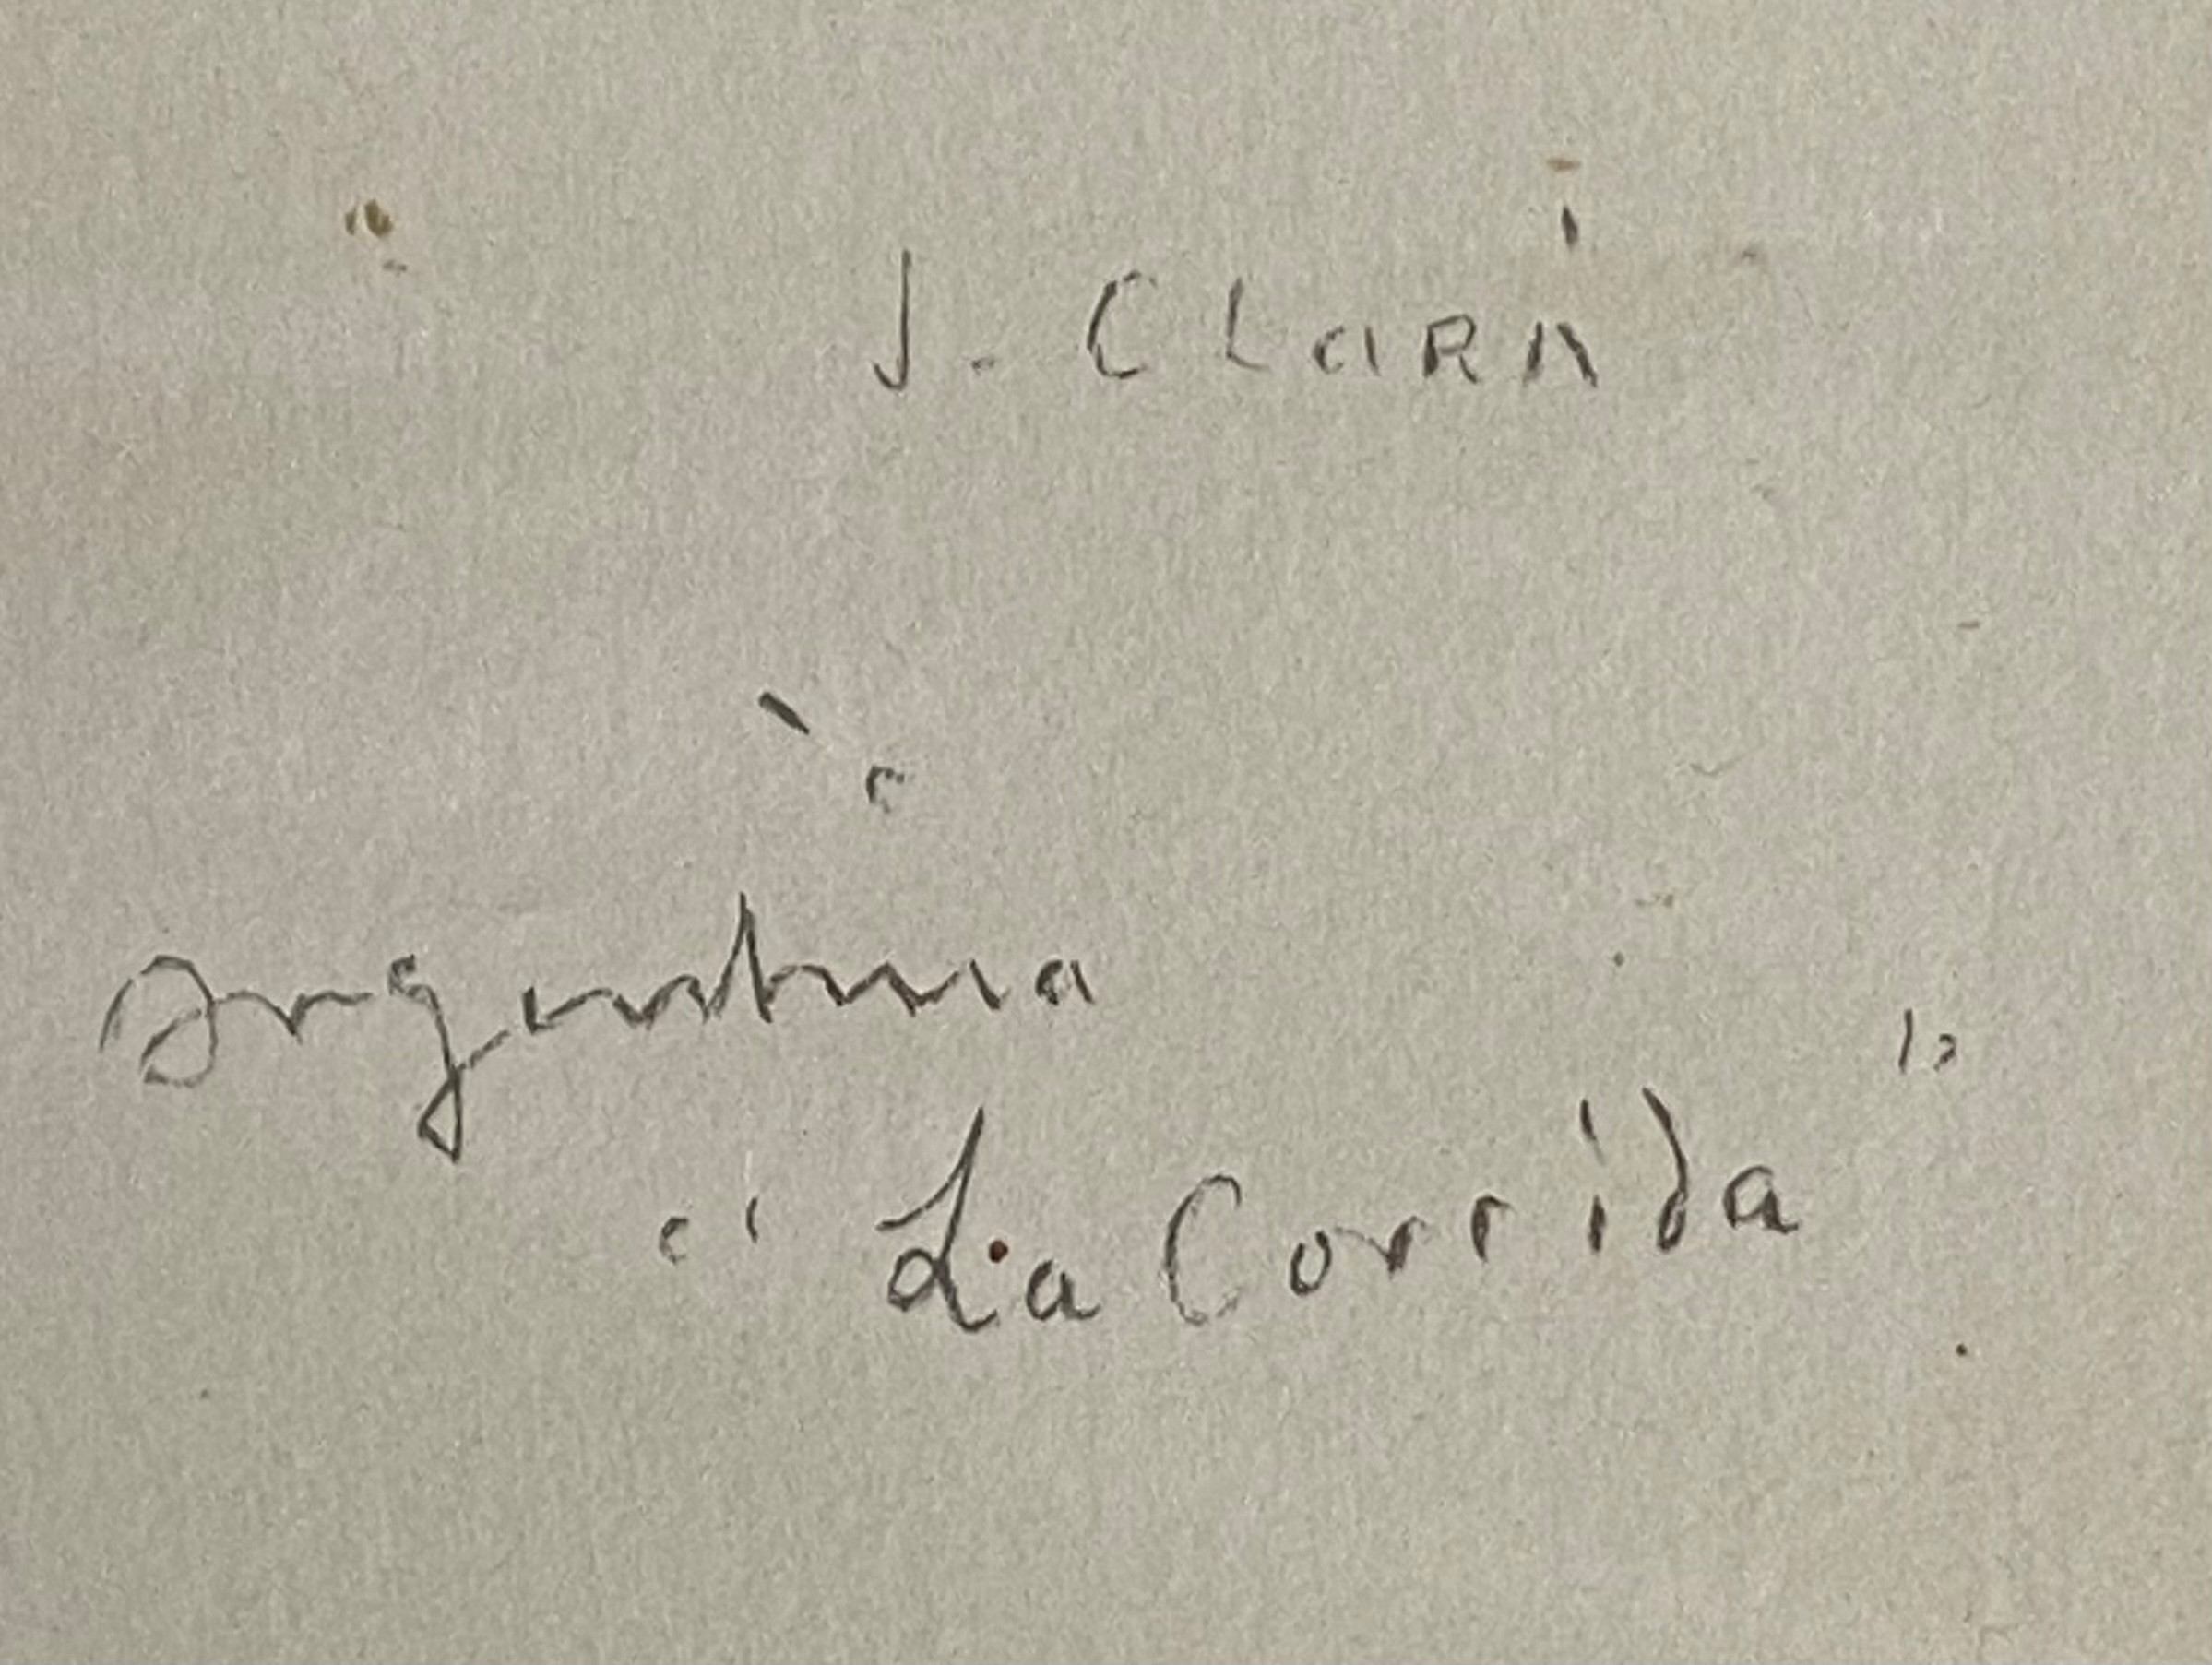 J. CLARÀ
Argentina
"La Corrida"